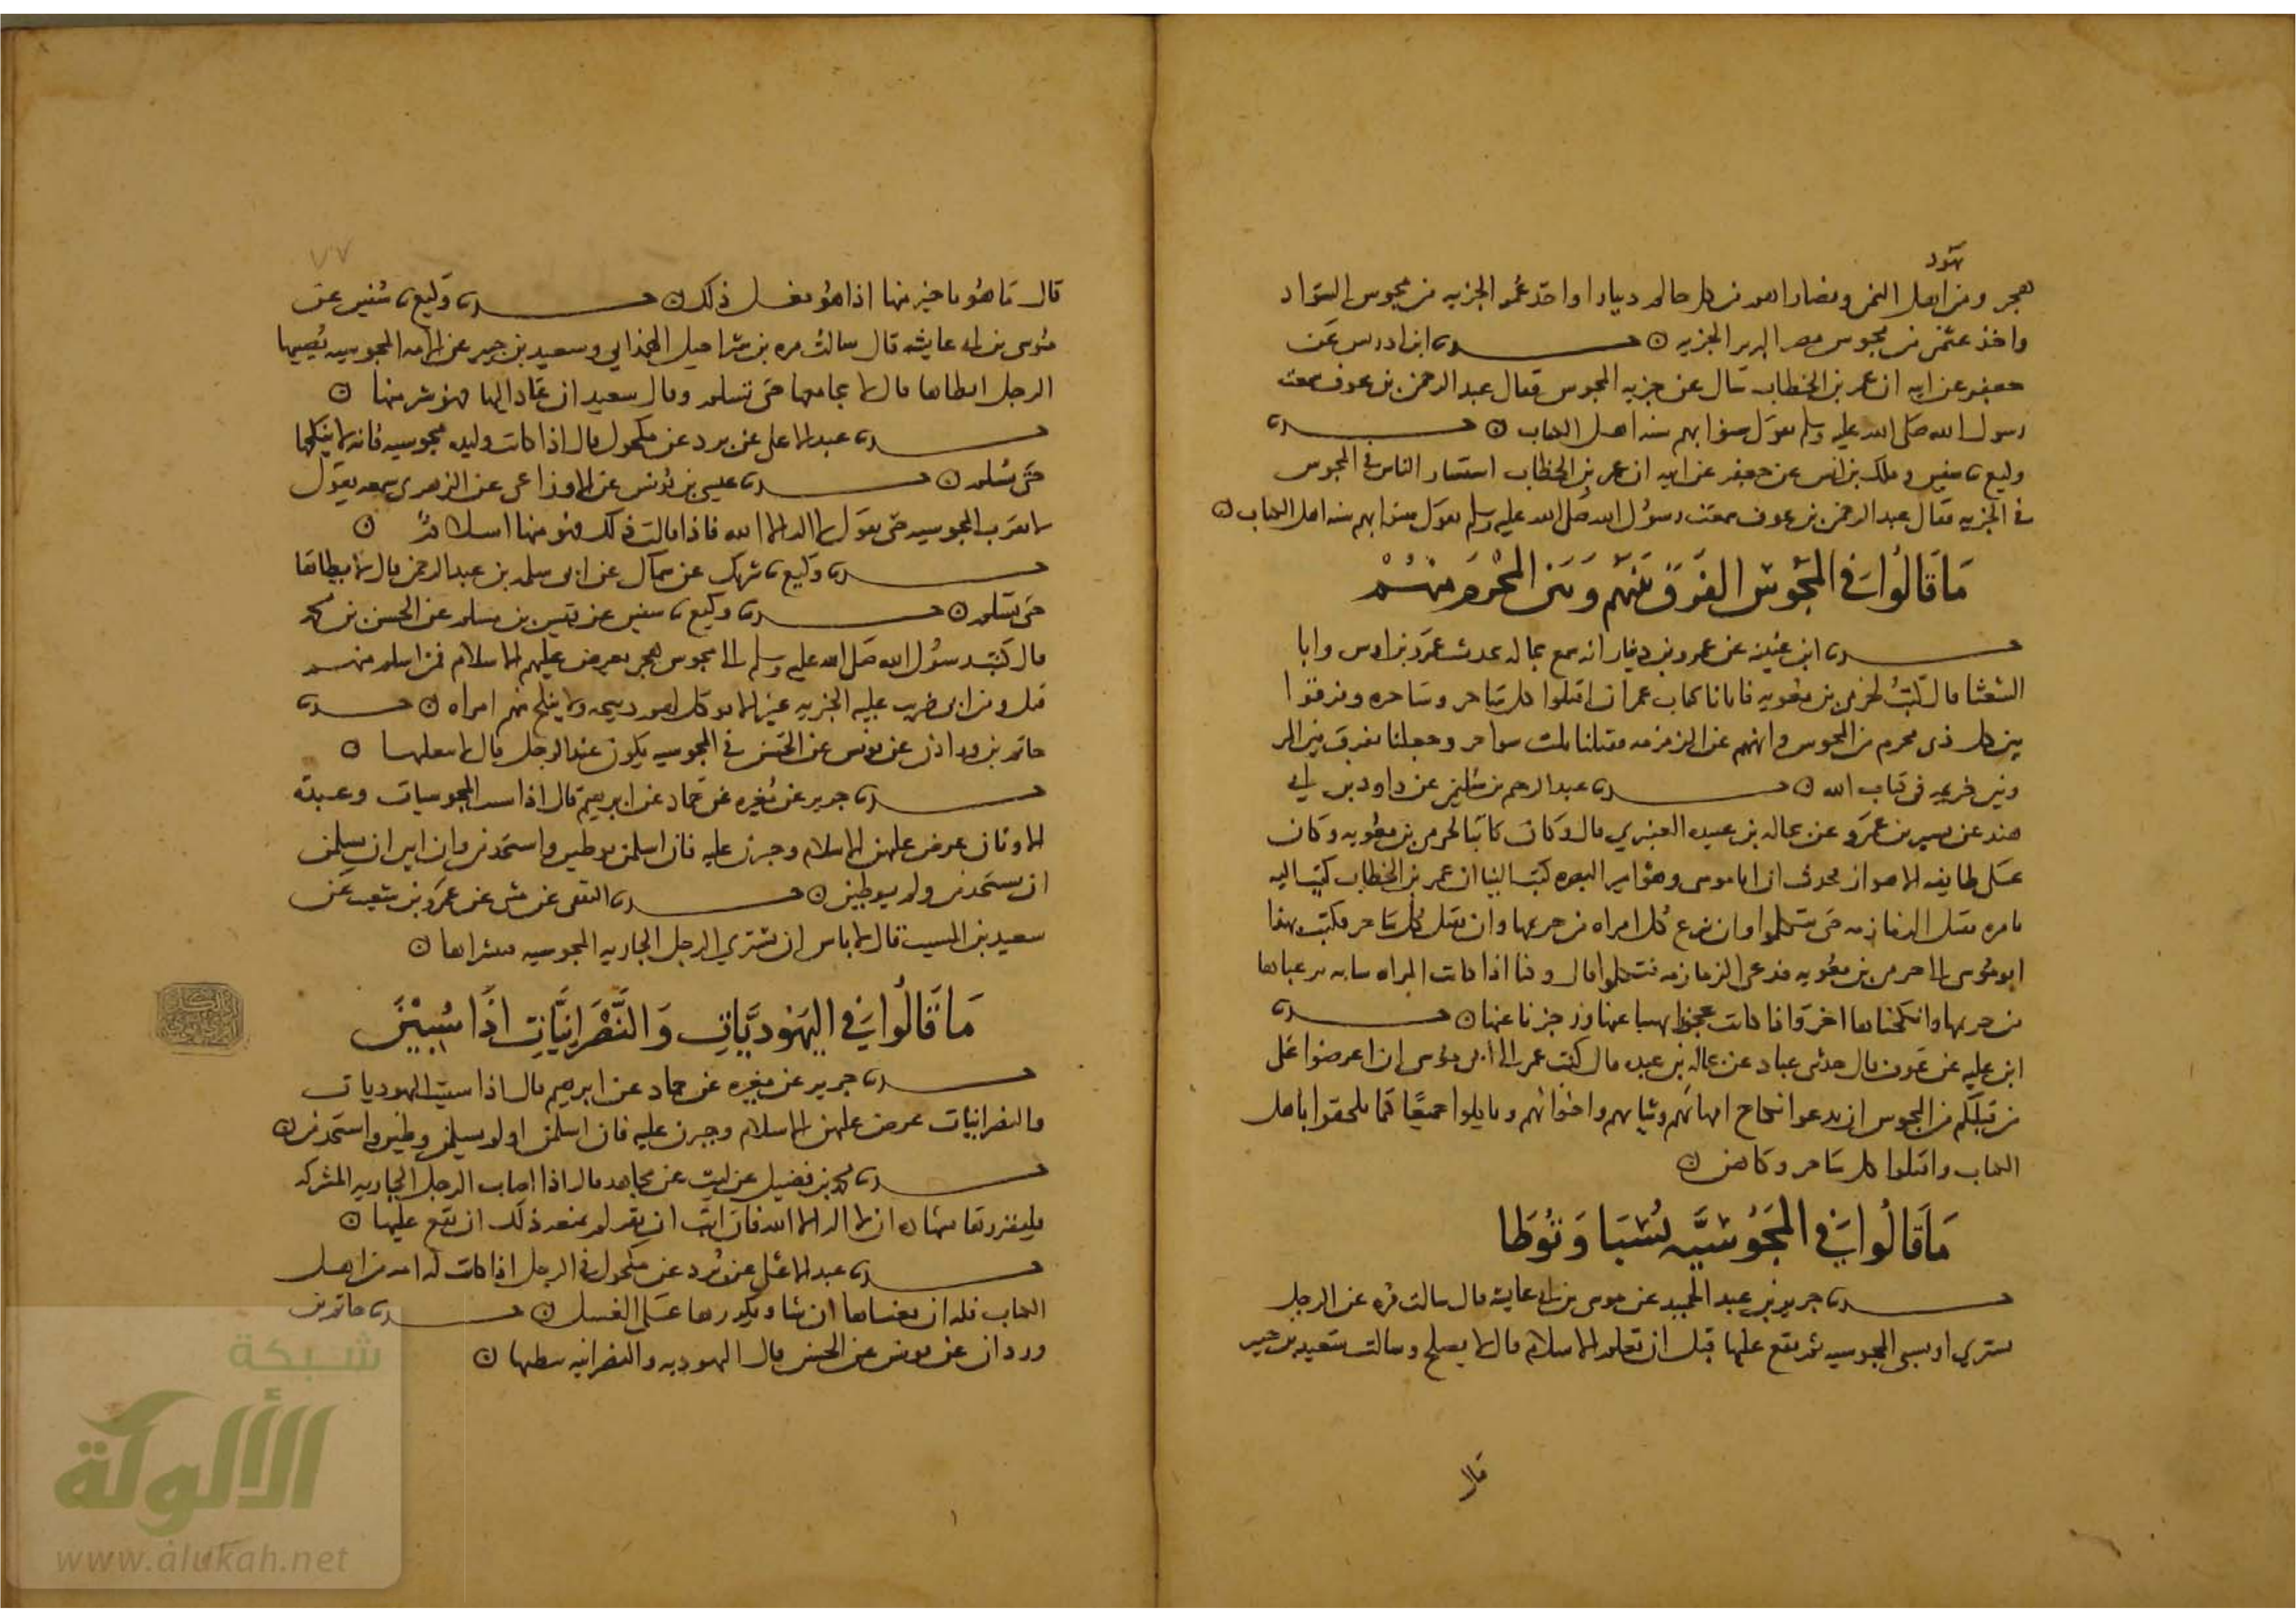 يهود
هجر ومن اهل اليمن ونصاراهم من كل حالم دينارا واخذ عمر الجزيه من مجوس السواد
واخذ عثمن من مجوس مصر البربر الجزيه حدثنا ابن ادريس عن
جعفر عن ابيه ان عمر بن الخطاب سال عن جزيه المجوس فقال عبد الرحمن بن عوف سمعت
رسول الله صلى الله عليه وسلم يقول سنوا بهم سنه اهل الكتاب حدثنا
وكيع نا سفين وملك بن انس عن جعفر عن ابيه ان عمر بن الخطاب استشار الناس في المجوس
في الجزيه فقال عبد الرحمن بن عوف سمعت رسول الله صلى الله عليه وسلم يقول سنوا بهم سنه اهل الكتاب
مَا قَالُوا في المَجُوسِ يفرق بينهم وبين المحرم منهم
حدثنا ابن عيينه عن عمرو بن دينار انه سمع بجاله يحدث عمرو بن اوس وابا
الشعثا قال كنت لجزي بن معويه فاتانا كتاب عمر ان اقتلوا كل ساحر وساحره وفرقوا
بين كل ذي محرم من المجوس وانههم عن الزمزمه فقتلنا ثلث سواحر وجعلنا نفرق بين المر
وبين حريمه في كتاب الله حدثنا عبد الرحيم بن سليمن عن داود بن ابي
هند عن قشير بن عمرو عن بجاله بن عبده العنبري قال وكان كاتبا لجزي بن معويه وكان
على طايفه الاهواز فحدث ان ابا موسى وهو امير البصره كتب الينا ان عمر بن الخطاب كتب اليه
يامره بقتل الزمازمه حتى يتكلموا وان ينزع كل امراه من حريمها وان يقتل كل ساحر فكتب بهذا
ابو موسى الى جزي بن معويه فدعى الزمازمه فتكلموا قال وكنا اذا كانت المراه شابه نزعناها
من حريمها وانكحناها اخر واذا كانت عجوزا نهينا عنها وزجرنا عنها حدثنا
ابن عليه عن عوف قال حدثني عباد عن بجاله بن عبده قال كتب عمر الى ابي موسى ان اعرضوا على
من قبلكم من المجوس ان يدعوا نكاح امهاتهم وبناتهم واخواتهم وياكلوا جميعا كما يلحقوا باهل
الكتاب واقتلوا كل ساحر وكاهن
مَا قَالُوا في المَجُوسيَّه تُسْبَا وَتُوطَا
حدثنا جرير بن عبد الحميد عن موسى بن ابي عايشه قال سالت مره عن الرجل
يشتري او يسبي المجوسيه ثم يقع عليها قبل ان تعلم الاسلام قال لا يصلح وسالت سعيد بن جبير
قال
قال ما هو باخير منها اذا هو فعل ذلك حدثنا وكيع نا سفين عن
موسى بن ابي عايشه قال سالت مره بن شراحيل الهمداني وسعيد بن جبير عن الامه المجوسيه يصيبها
الرجل ايطاها قال لا يجامعها حتى تسلم وقال سعيد ان عاد اليها فهو شر منها
حدثنا عبد الاعلى عن برد عن مكحول قال اذا كانت وليده مجوسيه فانه لا ينكحها
حتى تسلم حدثنا عيسى بن يونس عن الاوزاعي عن الزهري سمعه يقول
لا تقرب المجوسيه حتى تقول لا اله الا الله فاذا قالت ذلك فهو منها اسلام
حدثنا وكيع نا شريك عن سماك عن ابي سلمه بن عبد الرحمن قال لا يطاها
حتى تسلم حدثنا وكيع نا سفين عن قيس بن مسلم عن الحسن بن محمد
قال كتب رسول الله صلى الله عليه وسلم الى مجوس هجر يعرض عليهم الاسلام فمن اسلم منهم
قبل ومن ابى ضرب عليه الجزيه غير الا توكل لهم ذبيحه ولا ينكح منهم امراه حدثنا
حاتم بن وردان عن يونس عن الحسن في المجوسيه تكون عند الرجل قال لا يطاها
حدثنا جرير عن مغيره عن حماد عن ابرهيم قال اذا سبيت المجوسيات وعبدة
الاوثان عرض عليهن الاسلام وجبرن عليه فان اسلمن يوطين واستخدمن وان ابين ان يسلمن
ان يستخدمن ولم يوطين حدثنا الثقفي عن مثنى عن عمرو بن شعيب عن
سعيد بن المسيب قال لا باس ان يشتري الرجل الجاريه المجوسيه فيتسراها
مَا قَالُوا في اليَهُوديَّاتِ وَالنَّصْرَانِيَّاتِ اذَا سُبِيْنَ
حدثنا جرير عن مغيره عن حماد عن ابرهيم قال اذا سبيت اليهوديات
والنصرانيات عرض عليهن الاسلام وجبرن عليه فان اسلمن او لم يسلمن وطين واستخدمن
حدثنا محمد بن فضيل عن ليث عن مجاهد قال اذا اصاب الرجل الجاريه المشركه
فليقررها بشهاده ان لا اله الا الله فان ابت ان تقر لم يمنعه ذلك ان يقع عليها
حدثنا عبد الاعلى عن برد عن مكحول في الرجل اذا كانت له امه من اهل
الكتاب فله ان يغشاها ان شا ويكرهها على الغسل حدثنا حاتم بن
وردان عن يونس عن الحسن قال اليهوديه والنصرانيه يطاها
شبكة
الألوكة
www.alukah.net